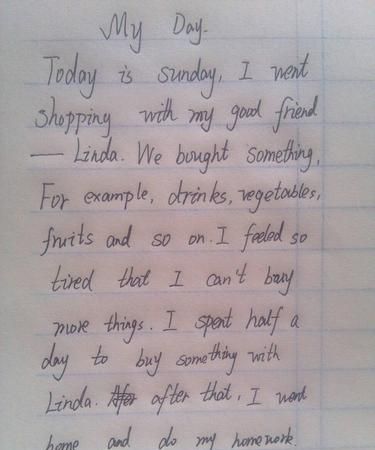 My Day.
Today is sunday, I went
shopping with my good friend
— Linda. We bought something,
For example, drinks, vegetables,
fruits and so on. I feeled so
tired that I can't buy
more things. I spent half a
day to buy something with
Linda. after that, I went
home and do my homework.